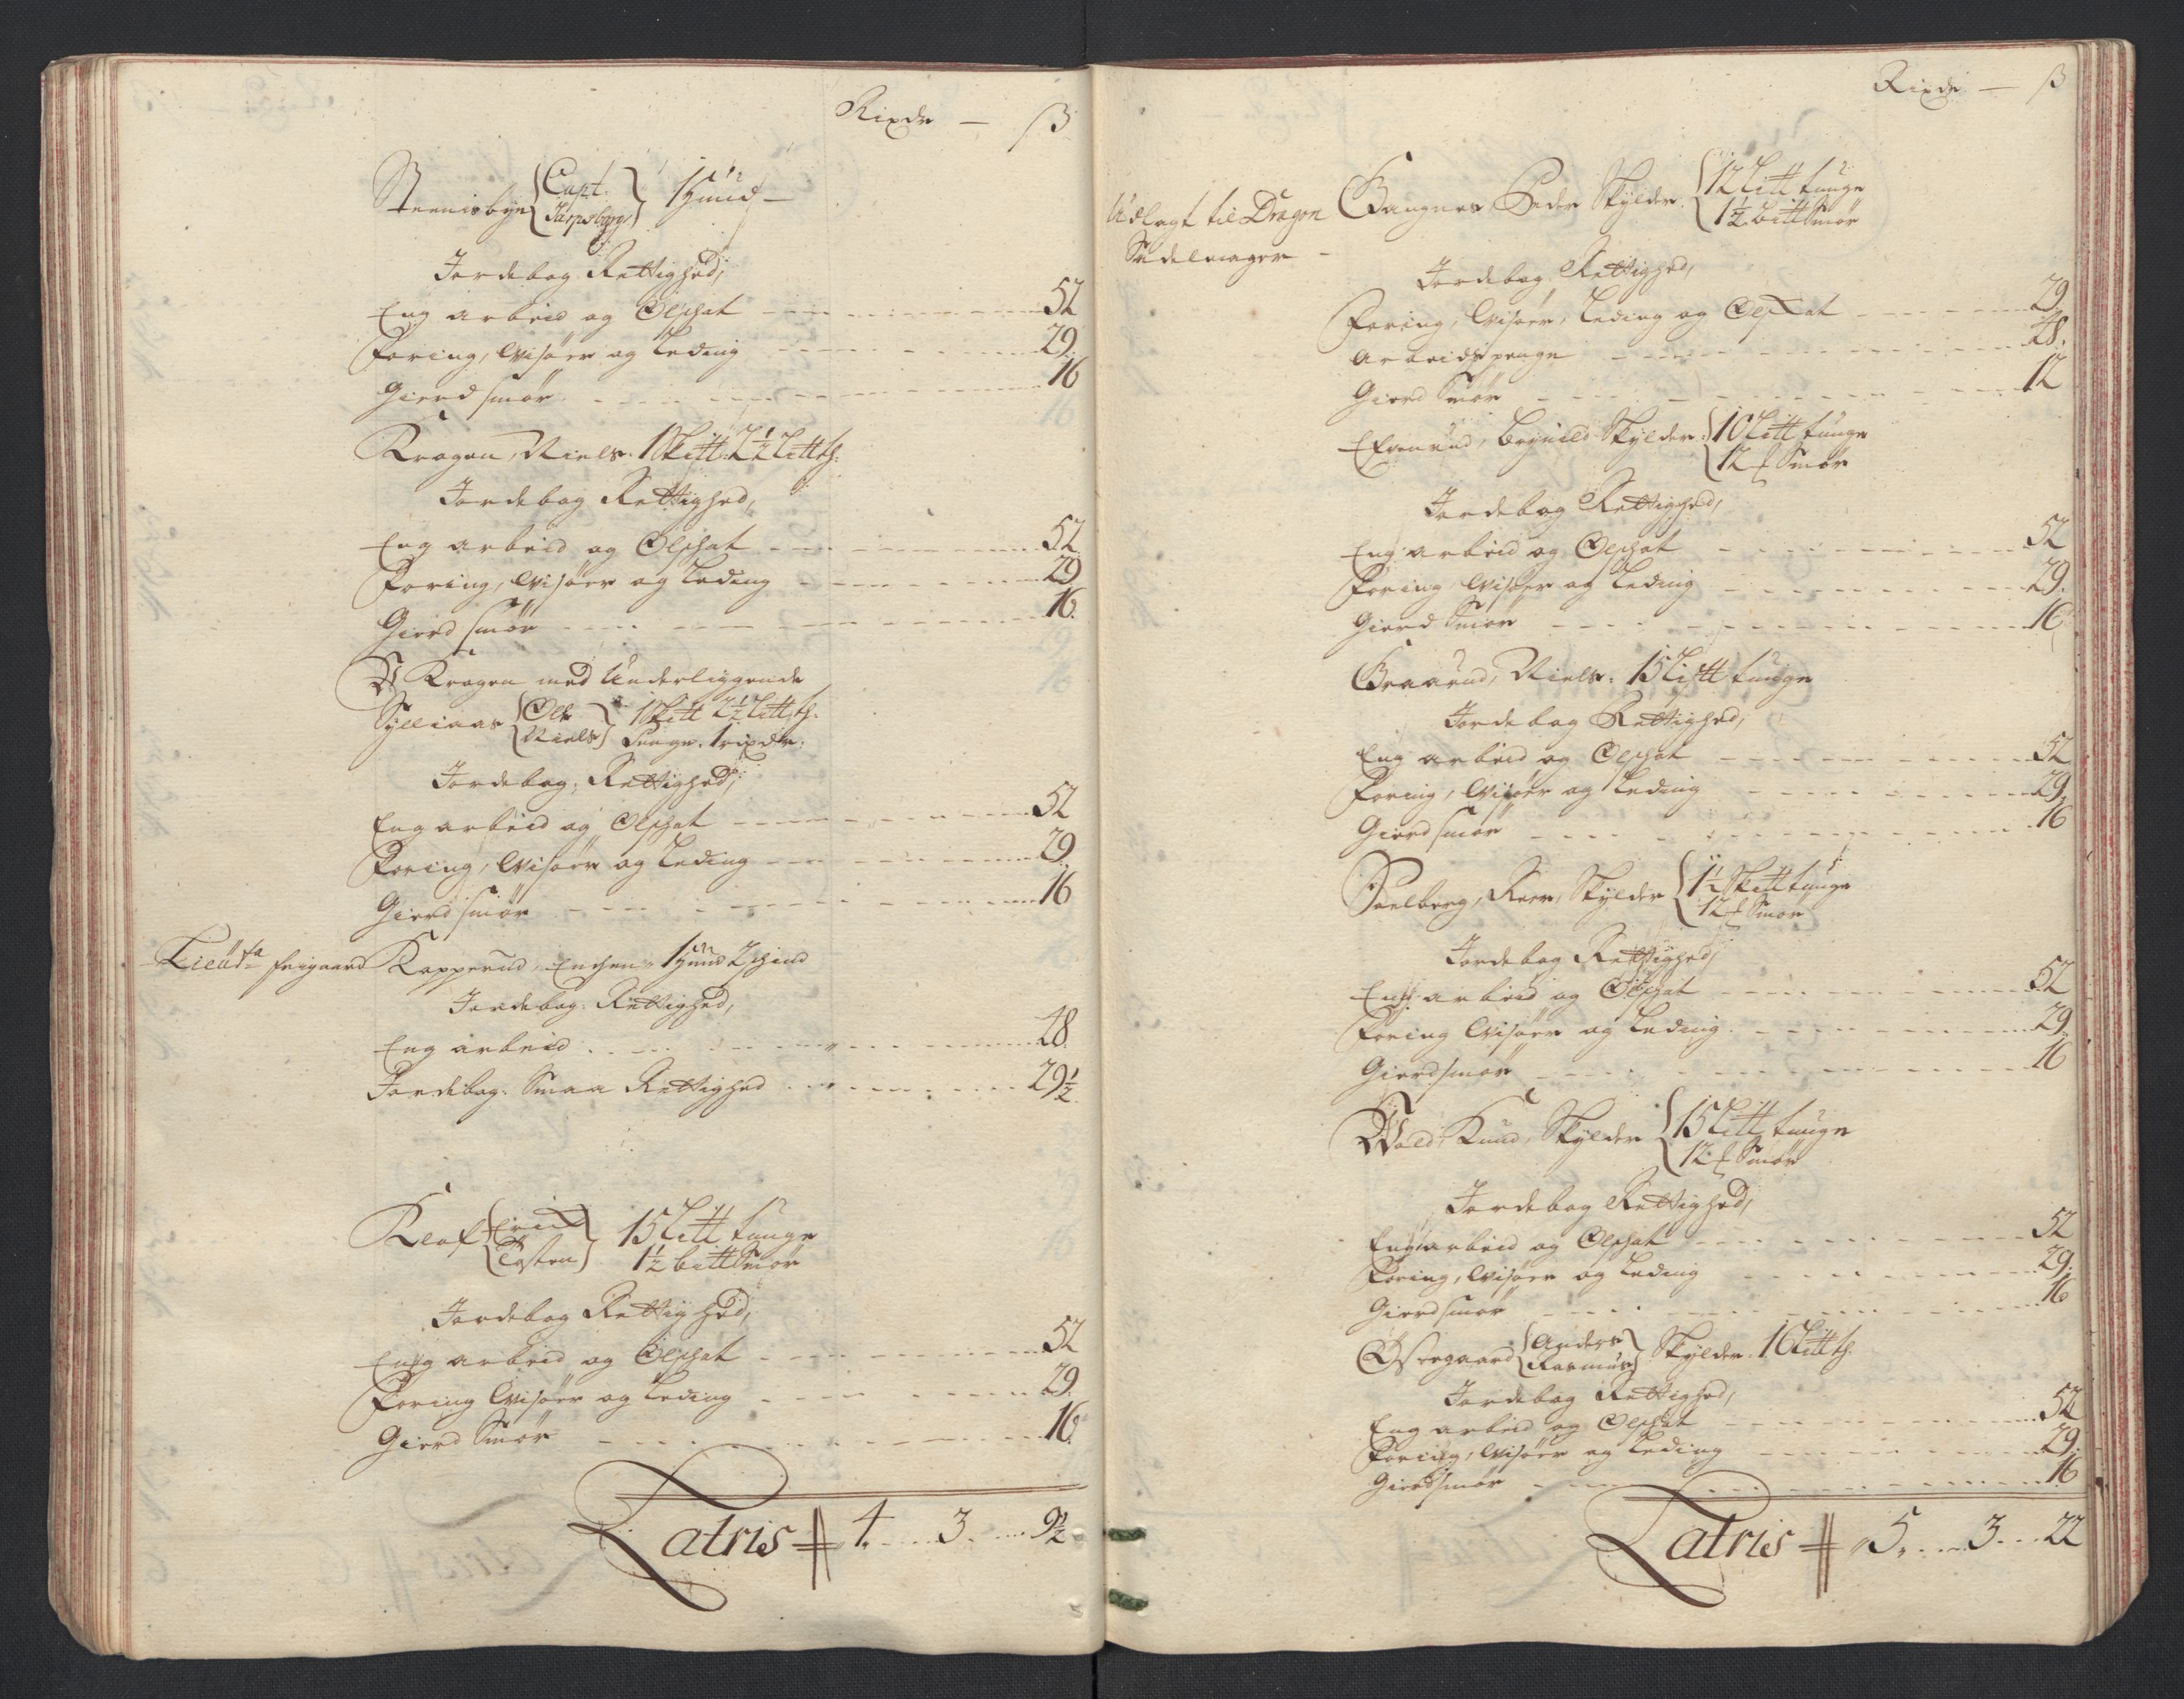 Rixdr — ß
Steenisbye { Capt. Tarpsborg } 1 Hund —
Jordebog Rettighed,
Eng arbeid og Ølehat 52
Foring, Wisøer og Leding 29
Gierd smør 16
Kragen, Niels. 1 Skitt: 2½ Litt tf:
Jordebog Rettighed,
Eng arbeid og Ølehat 52
Foring, Wisøer og Leding 29
Gierd smør 16.
Kragen med Underliggende
{ Ole Niels } 1 Skitt 2½ Litt tf.
Penge. 1 rixdr:
Jordebog: Rettighed,
Eng arbeid og Ølehat 52
Foring, Wisøer og Leding 29
Gierd smør 16
Lieutn frigaard Kopperud, 1 Hund 2 schind
Jordebog: Rettighed,
Eng arbeid 48.
Jordebog: Smaa Rettighed 29½
Kløf { Erich Tosten } 15 Litt tunge
1½ bitt Smør
Jordebog Rettighed,
Eng arbeid og Ølehat 52
Foring Wisøer og Leding 29.
Gierd Smør 16.
Latris 4. 3. 9½
Rixdr — ß
Udlagt til Dragon Sadelmager — Gangnes Peder Skylder { 12 Litt tunge
1½ bitt Smør
Jordebog Rettighed,
Foring, Wisøer, Leding og Ølehat 29.
Arbeids penge 48.
Gierd Smør 12
Brynild Skylder { 10 Litt tunge
12 ℔ Smør
Jordebog Rettighed,
Eng arbeid og Ølehat 52
Foring, Wisøer og Leding 29.
Gierd Smør 16
Graarud, Niels. 15 Litt tunge
Jordebog Rettighed,
Eng arbeid og Ølehat 52
Foring, Wisøer og Leding 29.
Gierd smør 16
Soelberg, Reer, Skylder { 1½ Skitt tunge
12 ℔ Smør
Jordebog Rettighed,
Eng arbeid og Ølehat 52
Foring Wisøer og Leding 29.
Gierd smør 16
Wold, Knud, Skylder { 15 Litt tunge
12 ℔ Smør
Jordebog Rettighed,
Eng arbeid og Ølehat 52
Foring, Wisøer og Leding 29.
Gierd smør 16
Østergaard { Anders Rasmus } Skylder. 10 Litt tf.
Jordebog Rettighed,
Eng arbeid og Ølehat 52
Foring, Wisøer og Leding 29.
Gierd smør 16
Latris 5. 3. 22